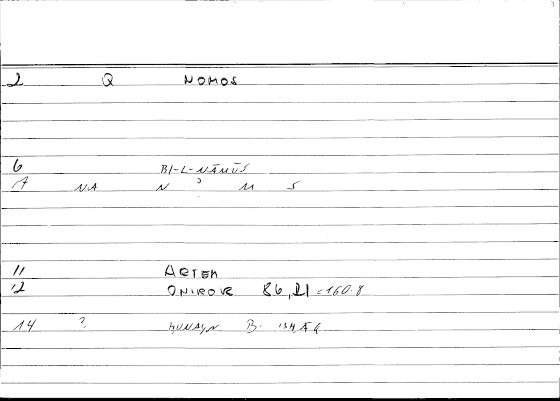 2 Q NOMOS
6 BI-L-NĀMŪS
7 NA N ʾ M S
11 ARTEM
12 ONIROKR 86,21 = 160.8
14 ? ḤUNAYN B. ISḤĀQ